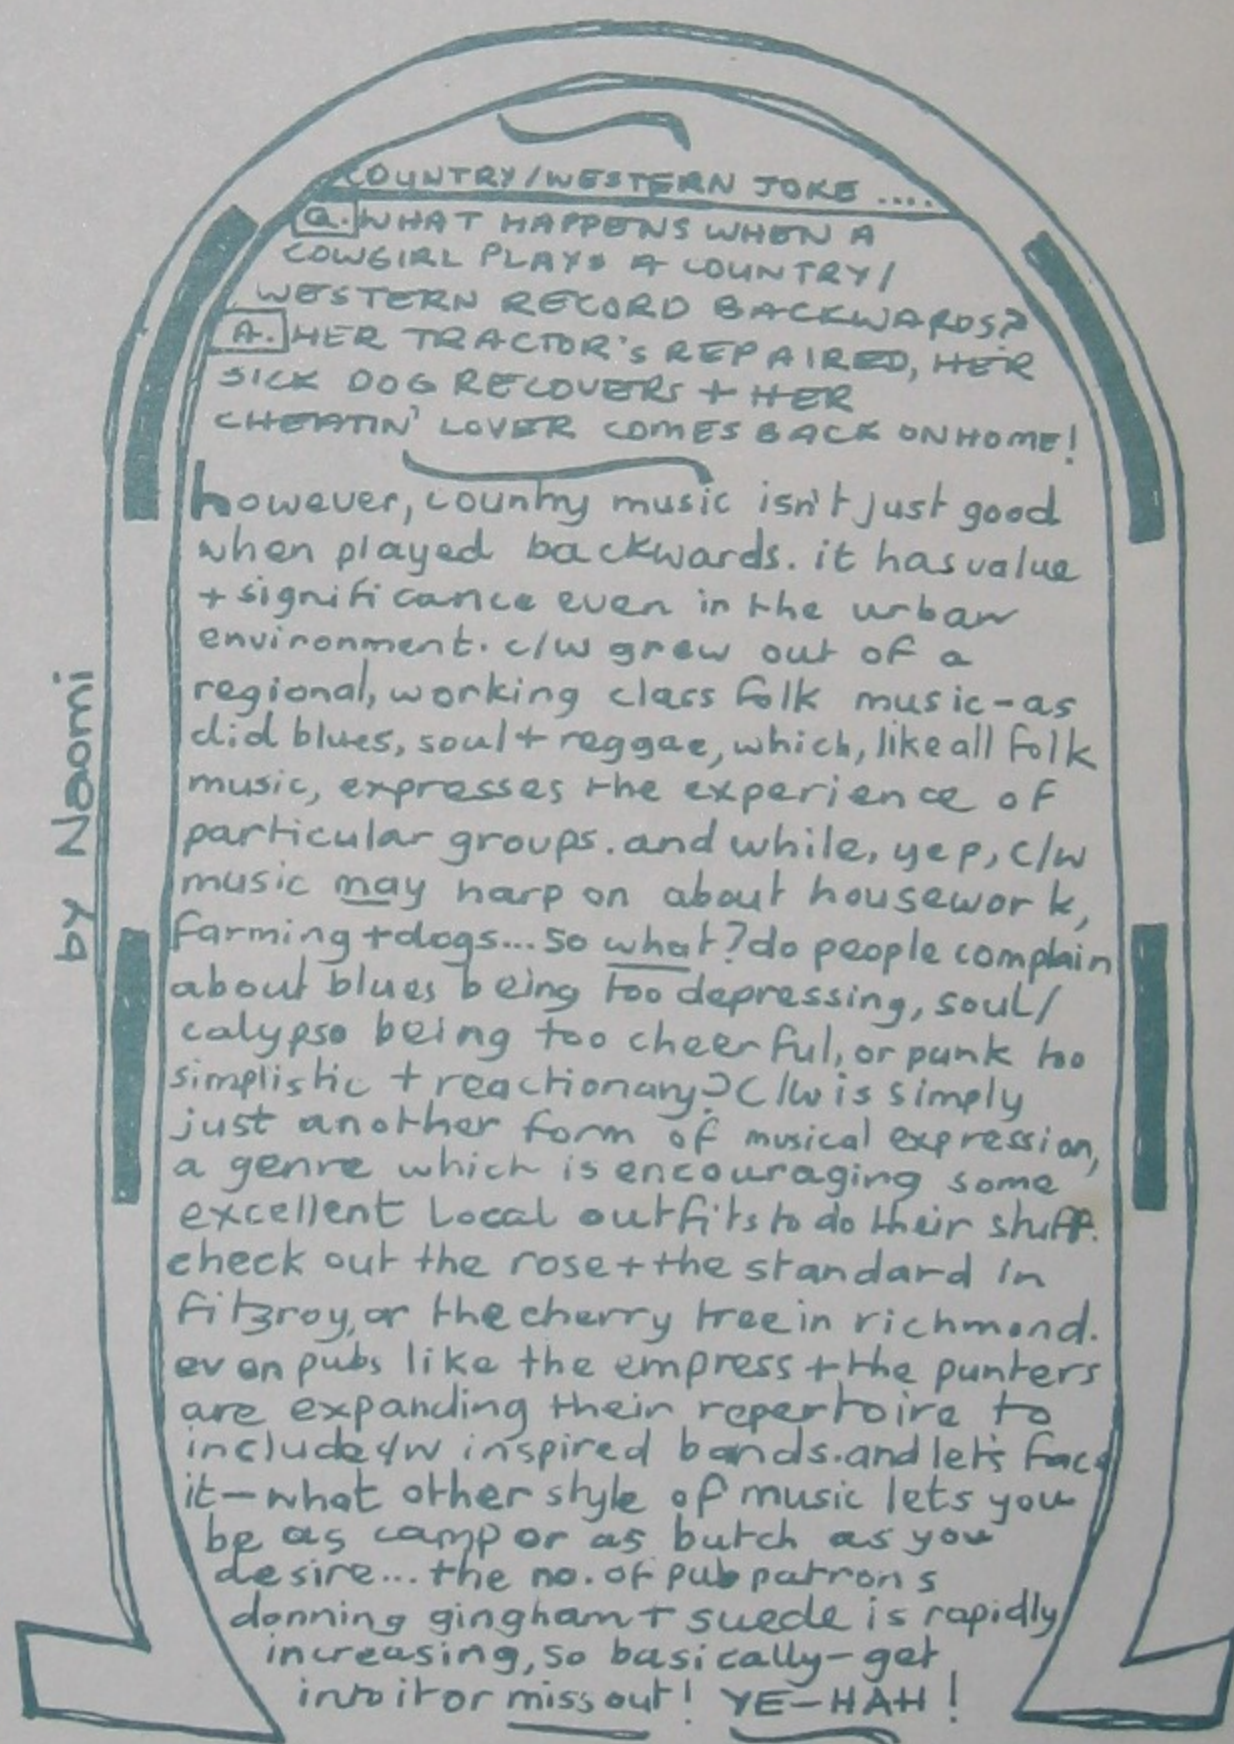 COUNTRY/WESTERN JOKE ....
Q. WHAT HAPPENS WHEN A
COWGIRL PLAYS A COUNTRY/
WESTERN RECORD BACKWARDS?
A. HER TRACTOR'S REPAIRED, HER
SICK DOG RECOVERS + HER
CHEATIN' LOVER COMES BACK ON HOME!
however, country music isn't just good
when played backwards. it has value
+ significance even in the urban
environment. c/w grew out of a
regional, working class folk music-as
did blues, soul + reggae, which, like all folk
music, expresses the experience of
particular groups. and while, yep, c/w
music may harp on about housework,
farming + dogs... so what? do people complain
about blues being too depressing, soul/
calypso being too cheerful, or punk too
simplistic + reactionary? C/W is simply
just another form of musical expression,
a genre which is encouraging some
excellent local outfits to do their stuff.
check out the rose + the standard in
fitzroy, or the cherry tree in richmond.
even pubs like the empress + the punters
are expanding their repertoire to
include c/w inspired bands. and let's face
it - what other style of music lets you
be as camp or as butch as you
desire... the no. of pub patrons
donning gingham + suede is rapidly
increasing, so basically - get
into it or miss out! YE-HAH!
by Naomi